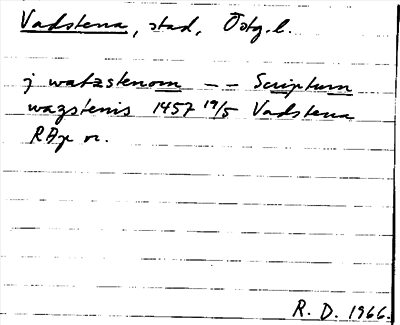 Vadstena, stad, Östg.l.
j watzstenom -- Scriptum
wazstenis 1457 19/5 Vadstena
RAp or.
R. D. 1966.